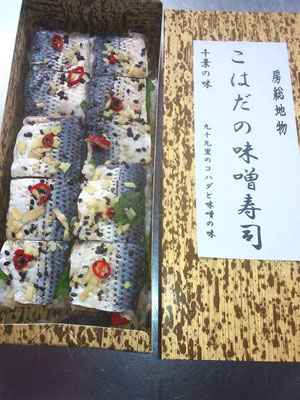 房総地物
こはだの味噌寿司
千葉の味
九十九里のコハダと味噌の味